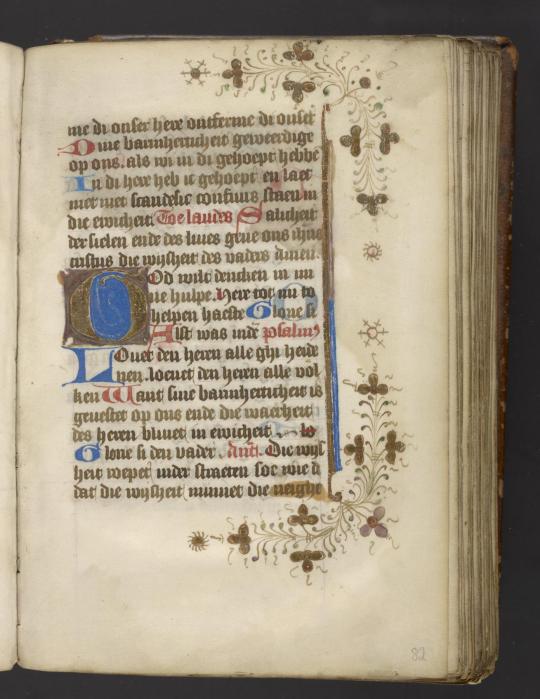 me di onser here ontferme di onser
Dine barmherticheit gewerdige
op ons. als wi in di gehoept hebbe
In di here heb ic gehoept en laet
mi niet scandelic confuus staen in
die ewicheit. Toe laudes Salicheit
der sielen ende des liues geue ons ihus
cristus die wijsheit des vaders amen.
God wilt dencken in mi
ne hulpe. Here tot mi to
helpen haeste Glorie si
Alst was inde psalm
Louet den heren alle ghi heide
nen. louet den heren alle vol
ken Want sine barmherticheit is
geuestet op ons ende die waerheit
des heren bliuet in ewicheit
Glorie si den vader. Ant. Die wijs
heit roepet inder straeten soe wie d
dat die wijsheit minnet die neighe
82